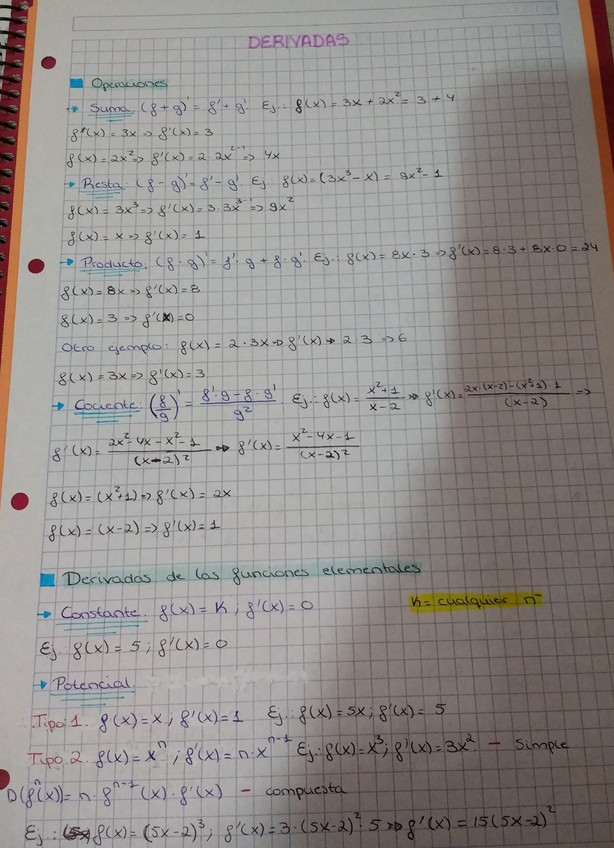 DERIVADAS
Operaciones
→ Suma. (f + g)' = f' + g' Ej.: f(x) = 3x + 2x² = 3 + 4
f'(x) = 3x ⇒ f'(x) = 3
f(x) = 2x² ⇒ f'(x) = 2·2x²⁻¹ ⇒ 4x
→ Resta. (f - g)' = f' - g' Ej. f(x) = (3x³ - x) = 9x² - 1
f(x) = 3x³ ⇒ f'(x) = 3·3x³⁻¹ ⇒ 9x²
f(x) = x ⇒ f'(x) = 1
→ Producto. (f · g)' = f' · g + f · g' Ej.: f(x) = 8x · 3 ⇒ f'(x) = 8·3 + 8x·0 = 24
f(x) = 8x ⇒ f'(x) = 8
f(x) = 3 ⇒ f'(x) = 0
Otro ejemplo: f(x) = 2 · 3x ⇒ f'(x) ⇒ 2·3 ⇒ 6
f(x) = 3x ⇒ f'(x) = 3
→ Cociente. (f/g)' = (f'·g - f·g')/g² Ej.: f(x) = (x²+1)/(x-2) ⇒ f'(x) = (2x·(x-2) - (x²+1)·1)/(x-2) ⇒
f'(x) = (2x² - 4x - x² - 1)/(x-2)² ⇒ f'(x) = (x² - 4x - 1)/(x-2)²
f(x) = (x²+1) ⇒ f'(x) = 2x
f(x) = (x-2) ⇒ f'(x) = 1
Derivadas de las funciones elementales
→ Constante. f(x) = K ; f'(x) = 0 K = cualquier nº
Ej. f(x) = 5 ; f'(x) = 0
→ Potencial
Tipo 1. f(x) = x ; f'(x) = 1 Ej.: f(x) = 5x ; f'(x) = 5
Tipo 2. f(x) = xⁿ ; f'(x) = n·xⁿ⁻¹ Ej.: f(x) = x³ ; f'(x) = 3x² - Simple
D(fⁿ(x)) = n·fⁿ⁻¹(x)·f'(x) - compuesta
Ej.: f(x) = (5x-2)³ ; f'(x) = 3·(5x-2)²·5 ⇒ f'(x) = 15(5x-2)²